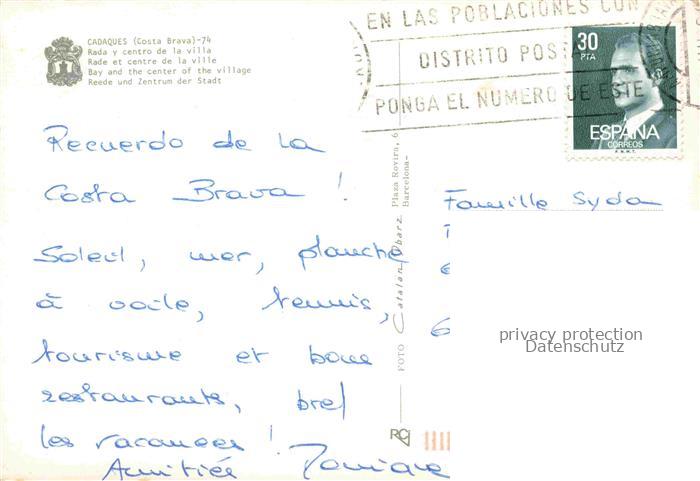 CADAQUES (Costa Brava)-74
Rada y centro de la villa
Rade et centre de la ville
Bay and the center of the village
Reede und Zentrum der Stadt
EN LAS POBLACIONES CON
DISTRITO POSTA
PONGA EL NUMERO DE ESTE
30
PTA
ESPAÑA
CORREOS
F.N.M.T.
Recuerdo de la
Costa Brava !
Soleil, mer, planche
à voile, tennis,
tourisme et bons
restaurants, bref
les vacances !
Amitiés
FOTO Catalan Ibarz Plaza Rovira, 6
Barcelona-
RCI
Famille Syda
6
privacy protection
Datenschutz